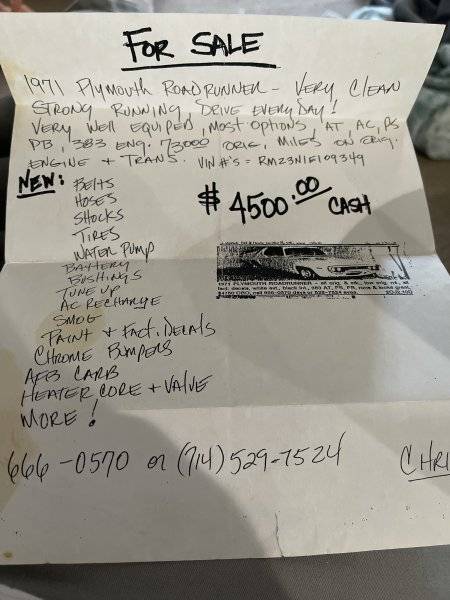 FOR SALE
1971 PLYMOUTH ROADRUNNER - VERY CLEAN
STRONG RUNNING, DRIVE EVERYDAY!
VERY WELL EQUIPED, MOST OPTIONS, AT, AC, PS
PB, 383 ENG. 73000 ORIG. MILES ON ORIG.
ENGINE + TRANS. VIN #'S = RM23N1E109349
NEW: BELTS
HOSES
SHOCKS
TIRES
WATER PUMP
BATTERY
BUSHINGS
TUNE UP
AC RECHARGE
SMOG
PAINT + FACT. DECALS
CHROME BUMPERS
AFB CARB
HEATER CORE + VALVE
MORE!
$4500.00 CASH
1971 PLYMOUTH ROADRUNNER - all orig. & nk., low orig. mi.,
fact. decals, white ext., black int., 383 AT, PS, PB, runs &
666-0570 or (714) 529-7524
CHRI